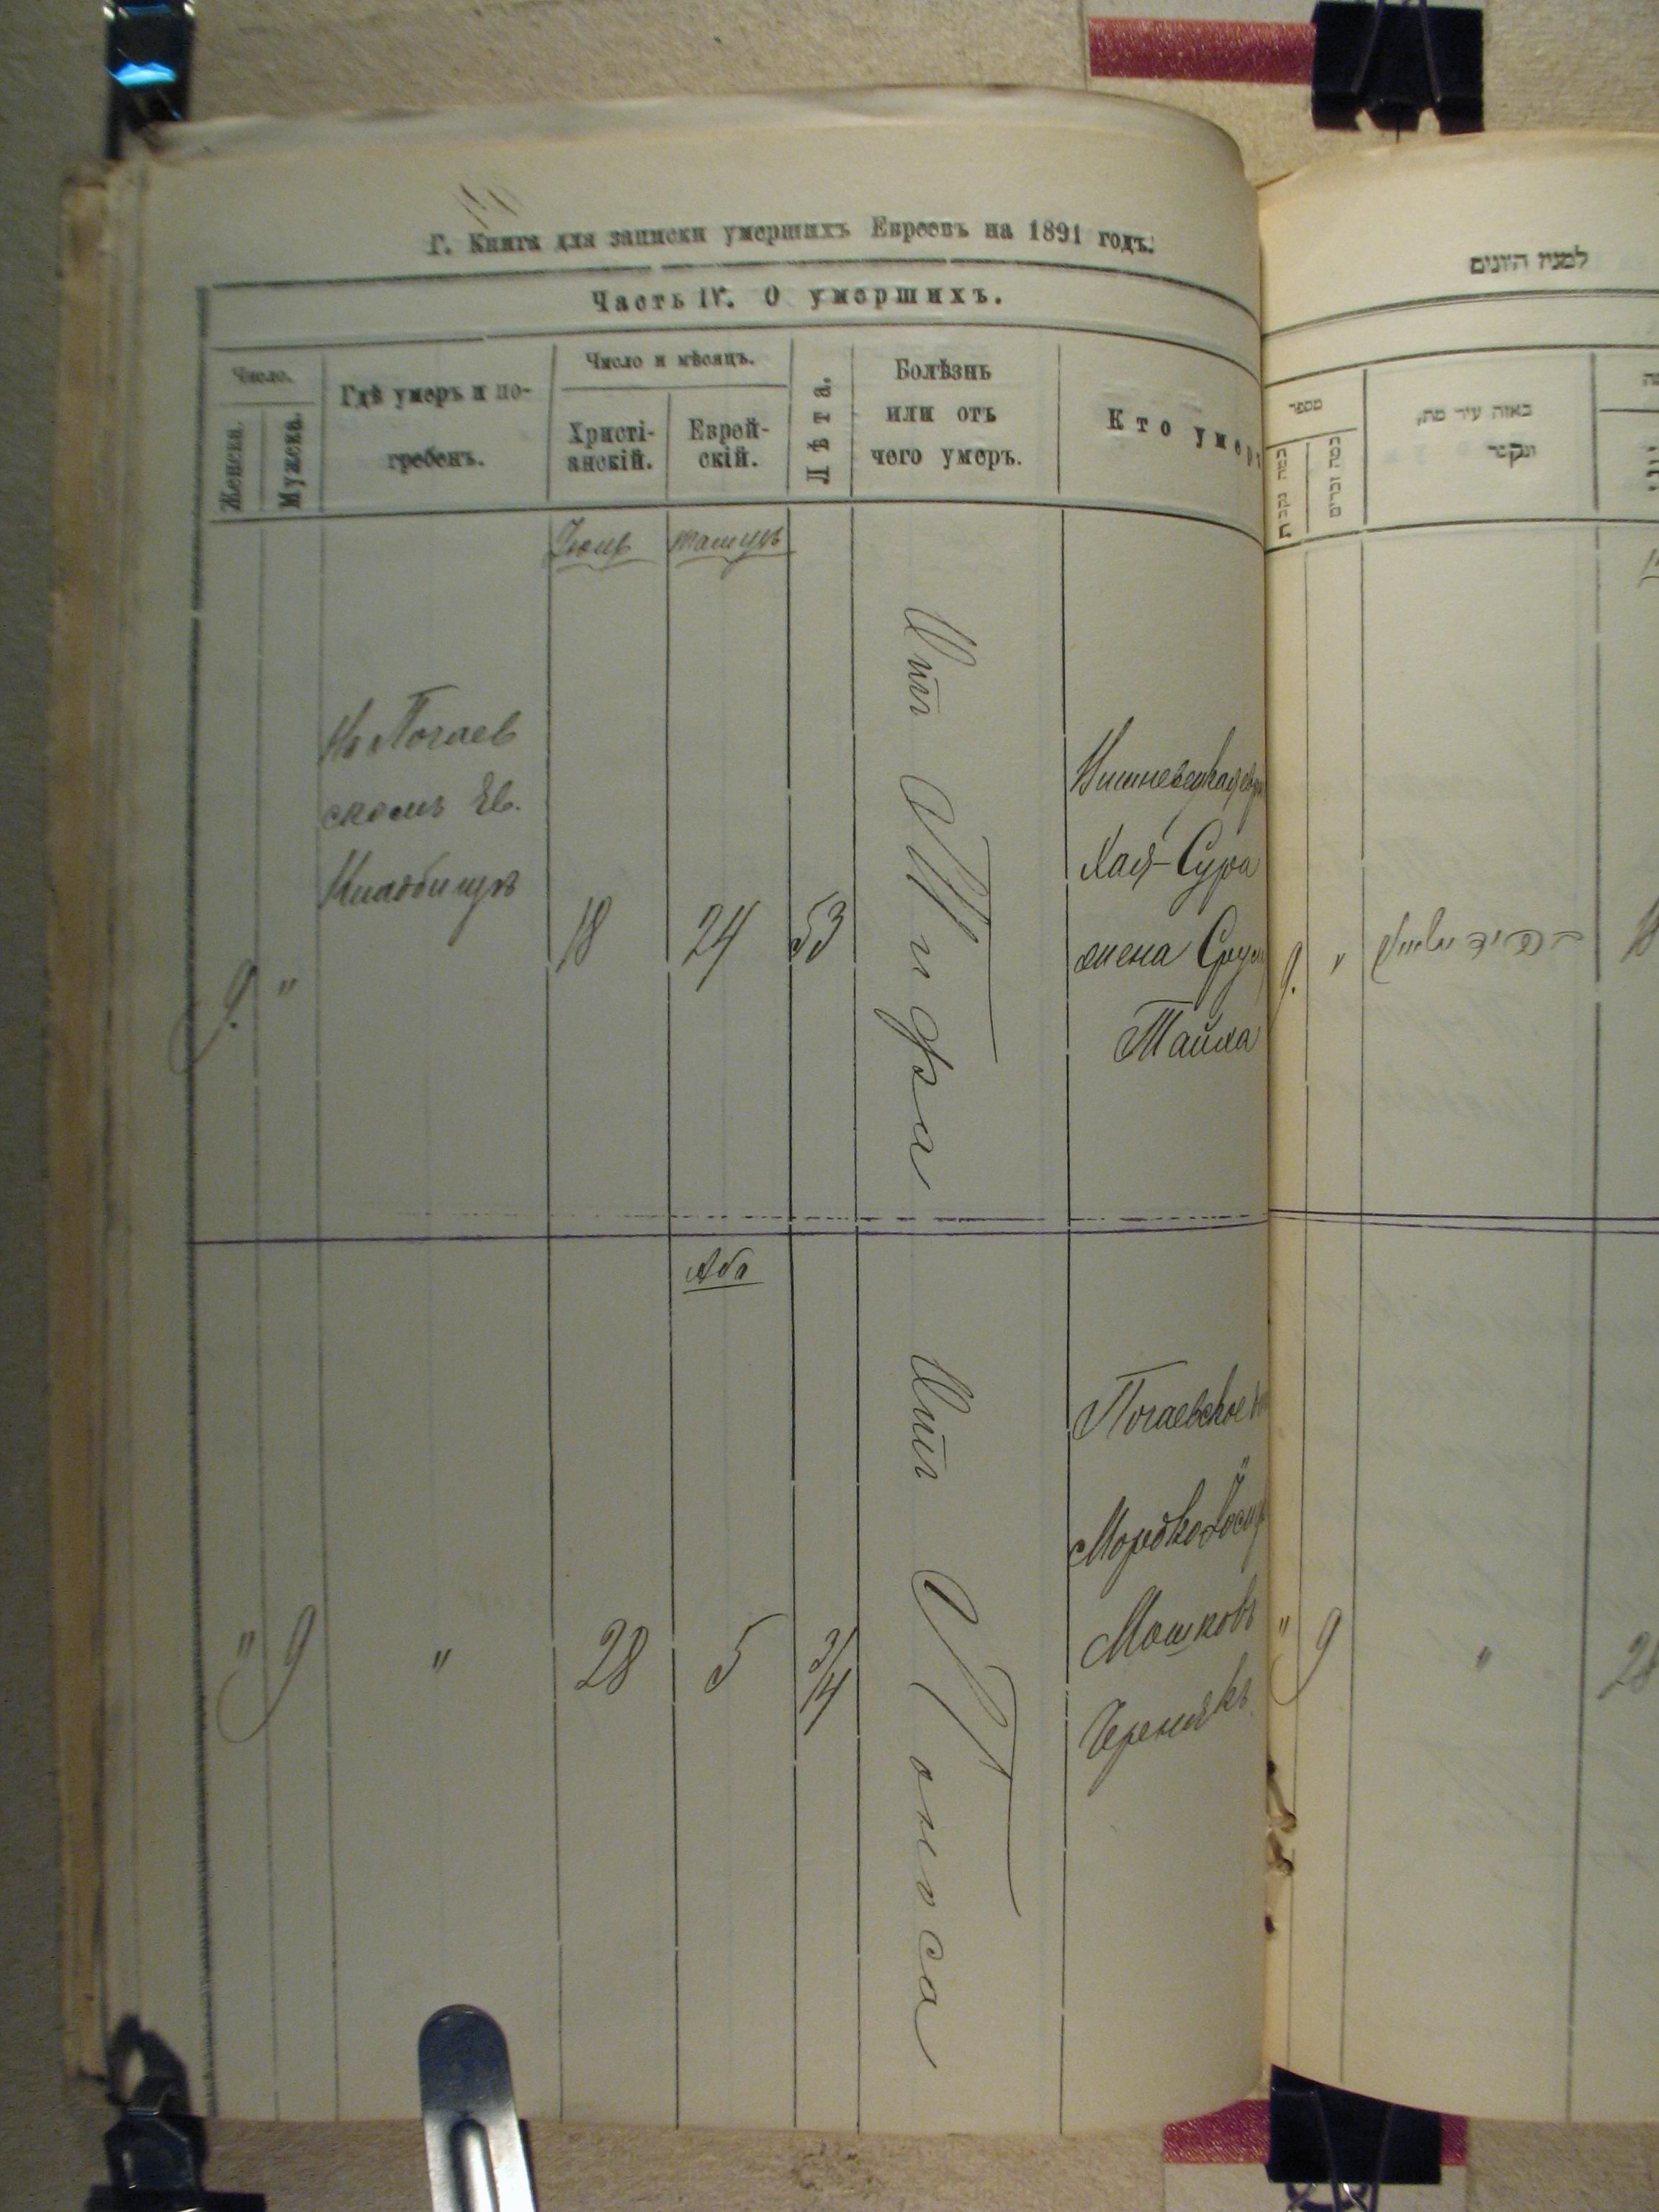 Г. Книга для записки умершихъ Евреевъ на 1891 годъ.
Часть IV. О умершихъ.
Число.
Женска.
Мужеска.
Гдѣ умеръ и по-
гребенъ.
Число и мѣсяцъ.
Христі-
анскій.
Еврей-
скій.
Лѣта.
Болѣзнь
или отъ
чего умеръ.
Кто умер
Іюль
тамузъ
На Почаев
скомъ Ев.
Кладбищѣ
9.
"
18
24
53
Отъ Тифа
Вишневецкая
Хая-Сура
жена Срул
Тайха
Аба
"
9
"
28
5
3/4
Отъ Поноса
Почаевское
Мордко-Іосиф
Мошковъ
Чернякъ
למנין היונים
מספר
כמה נקבות
כמה זכרים
באזה עיר מת,
ונקבר
9.
"
18
"
9
"
28